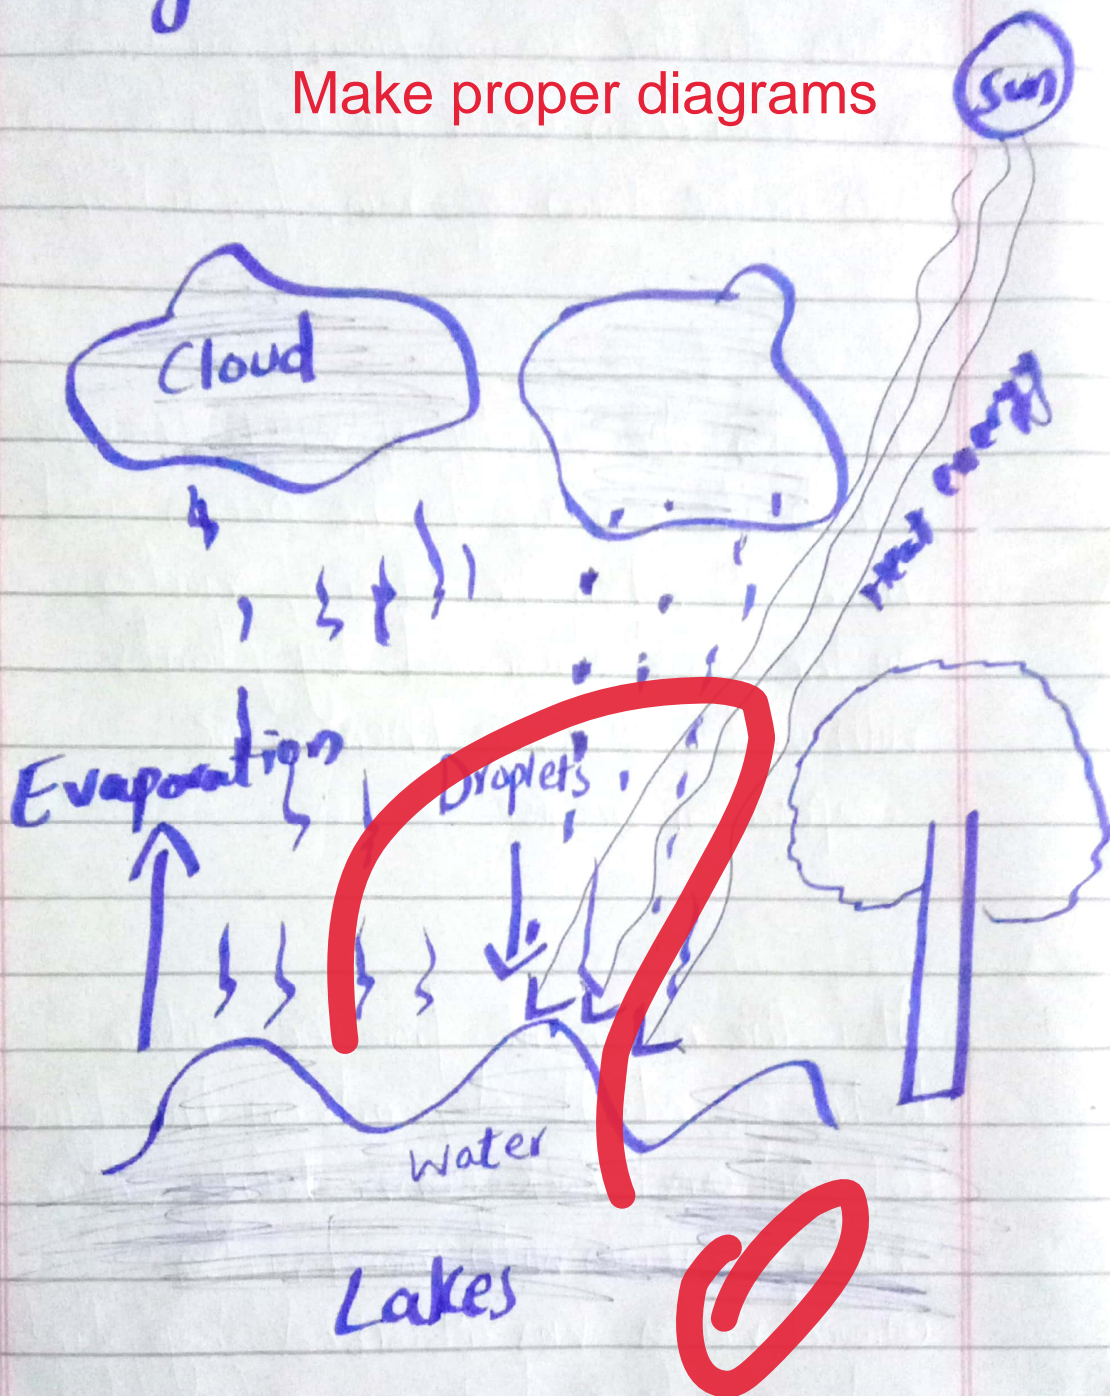 Make proper diagrams
Sun
Cloud
Heat energy
Evaporation
Droplets
Water
Lakes